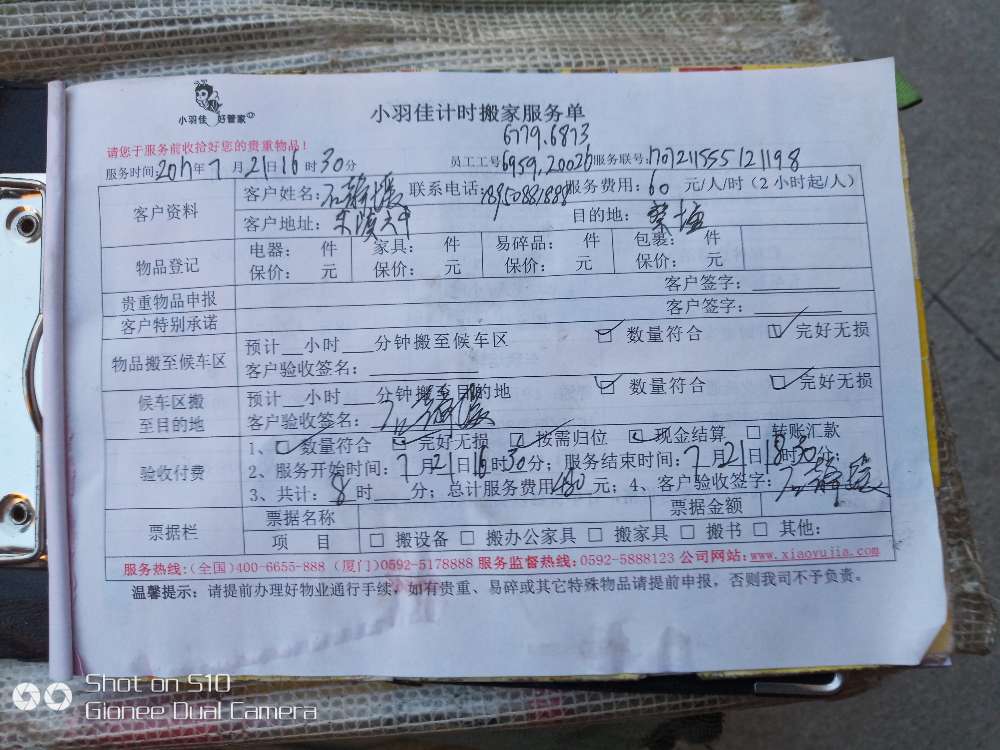 小羽佳 好管家
小羽佳计时搬家服务单
6779.6873
请您于服务前收拾好您的贵重物品！
服务时间:2017年7月21日16时30分 员工工号6959.20026服务联号:1707211555121198
客户资料 客户姓名: 联系电话:18950881888服务费用:60元/人/时（2小时起/人）
客户地址: 目的地:
物品登记 电器: 件 家具: 件 易碎品: 件 包裹: 件
保价: 元 保价: 元 保价: 元 保价: 元
贵重物品申报 客户签字:
客户特别承诺 客户签字:
物品搬至候车区 预计__小时___分钟搬至候车区 数量符合 完好无损
客户验收签名:
候车区搬至目的地 预计__小时___分钟搬至目的地 数量符合 完好无损
客户验收签名:
验收付费 1、数量符合 完好无损 按需归位 现金结算 转账汇款
2、服务开始时间:7月21日16时30分；服务结束时间:7月21日18时30分；
3、共计:8时___分；总计服务费用480元；4、客户验收签字:
票据栏 票据名称 票据金额
项目 搬设备 搬办公家具 搬家具 搬书 其他:
服务热线:(全国)400-6655-888 (厦门)0592-5178888 服务监督热线:0592-5888123 公司网站:www.xiaoyujia.com
温馨提示：请提前办理好物业通行手续，如有贵重、易碎或其它特殊物品请提前申报，否则我司不予负责。
Shot on S10
Gionee Dual Camera